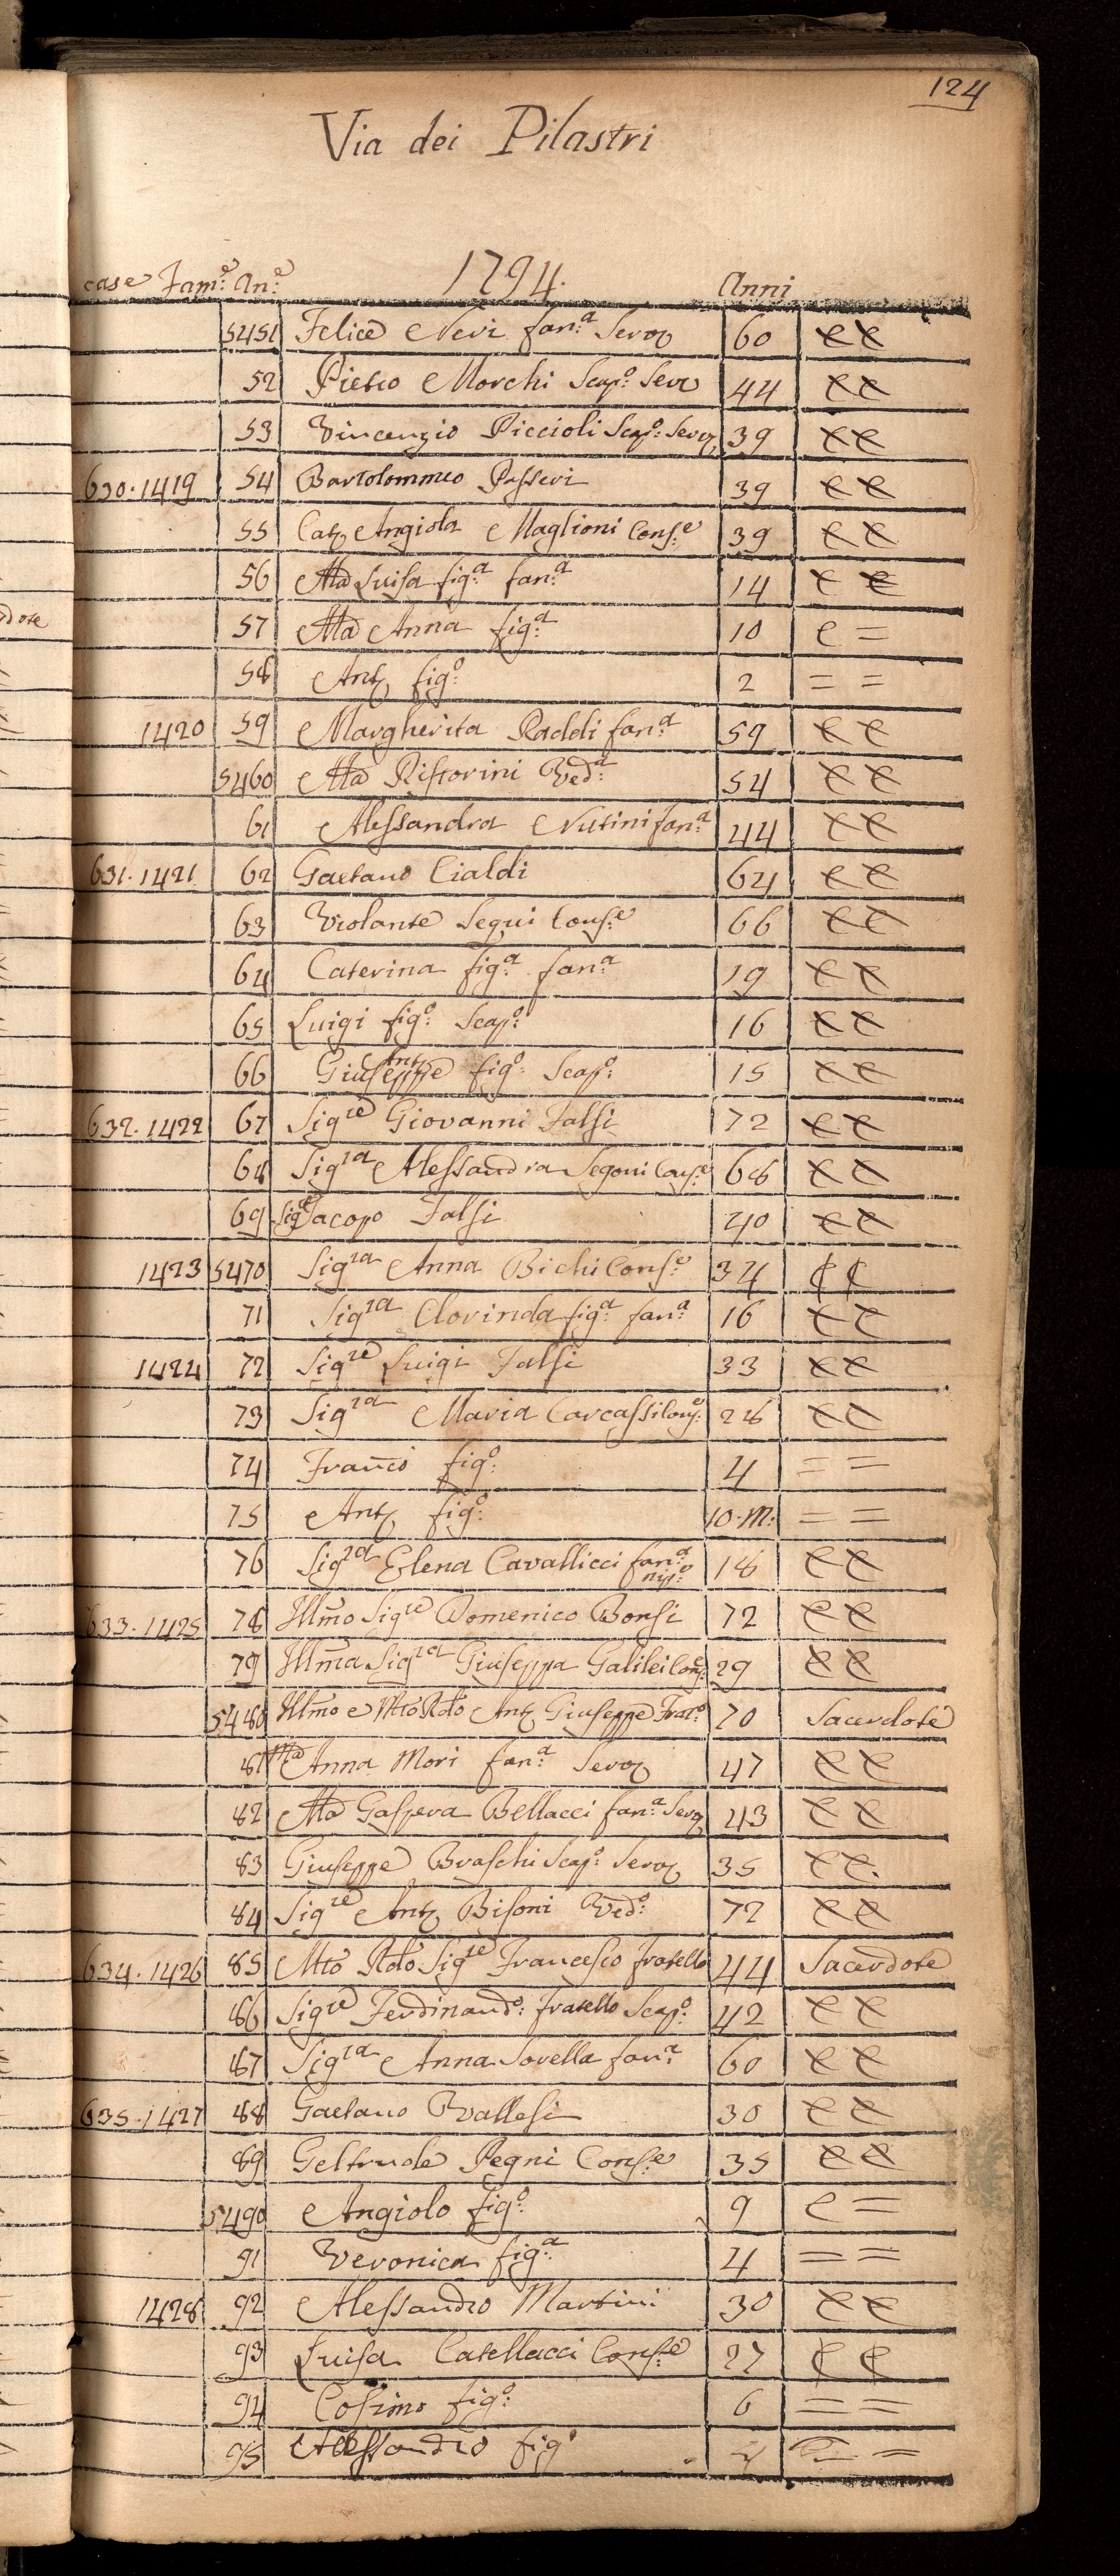 124
Via dei Pilastri
1794.
case Fam:e An:e Anni
5451 Felice Nevi fan:a Serva 60 C C
52 Pietro Morchi Scap:o Serv 44 C C
53 Vincenzio Piccioli Scap:o Serv 39 C C
630. 1419 54 Bartolommeo Passeri 39 C C
55 Cat Angiola Maglioni Cons:e 39 C C
56 Ma Luisa fig:a fan:a 14 C C
dote
57 Ma Anna fig:a 10 C =
58 Ant fig:o 2 = =
1420 59 Margherita Raddi fan:a 59 C C
5460 Ma Ristorini Ved:a 54 C C
61 Alessandra Nutini fan:a 44 C C
631. 1421 62 Gaetano Cialdi 64 C C
63 Violante Segui Cons:e 66 C C
64 Caterina fig:a fan:a 19 C C
65 Luigi fig:o Scap:o 16 C C
66 Giuseppe Ant fig:o Scap:o 15 C C
632. 1422 67 Sig.re Giovanni Falsi 72 C C
68 Sig.ra Alessandra Segoni Cons:e 68 C C
69 Sig.e Jacopo Falsi 40 C C
1423 5470 Sig.ra Anna Bichi Cons:e 34 C C
71 Sig.ra Clorinda fig:a fan:a 16 C C
1424 72 Sig.re Luigi Falsi 33 C C
73 Sig.ra Maria Carcassi Cons:e 28 C C
74 Franco fig:o 4 = =
75 Ant fig:o 10. M: = =
76 Sig.ra Elena Cavallicci fan:a nip:e 18 C C
633. 1425 78 Illmo Sig.re Domenico Bonsi 72 C C
79 Illma Sig.ra Giuseppa Galilei Cons:e 29 C C
5480 Illmo e Mto Rdo Ant Giuseppe Frat:o 70 Sacerdote
81 Ma Anna Mori fan:a Serva 47 C C
82 Ma Gaspera Bellacci fan:a Serva 43 C C
83 Giuseppe Braschi Scap:o Serv 35 C C.
84 Sig.re Ant Bisoni Ved:o 72 C C
634. 1426 85 Mto Rdo Sig.re Francesco fratello 44 Sacerdote
86 Sig.re Ferdinand:o fratello Scap:o 42 C C
87 Sig.ra Anna Sorella fan:a 60 C C
635. 1427 88 Gaetano Ballesi 30 C C
89 Geltrude Pegni Cons:e 35 C C
5490 Angiolo fig:o 9 C =
91 Veronica fig:a 4 = =
1428 92 Alessandro Martini 30 C C
93 Luisa Catellacci Cons:e 27 C C
94 Cosimo fig:o 6 = =
95 Alessandro fig:o = =